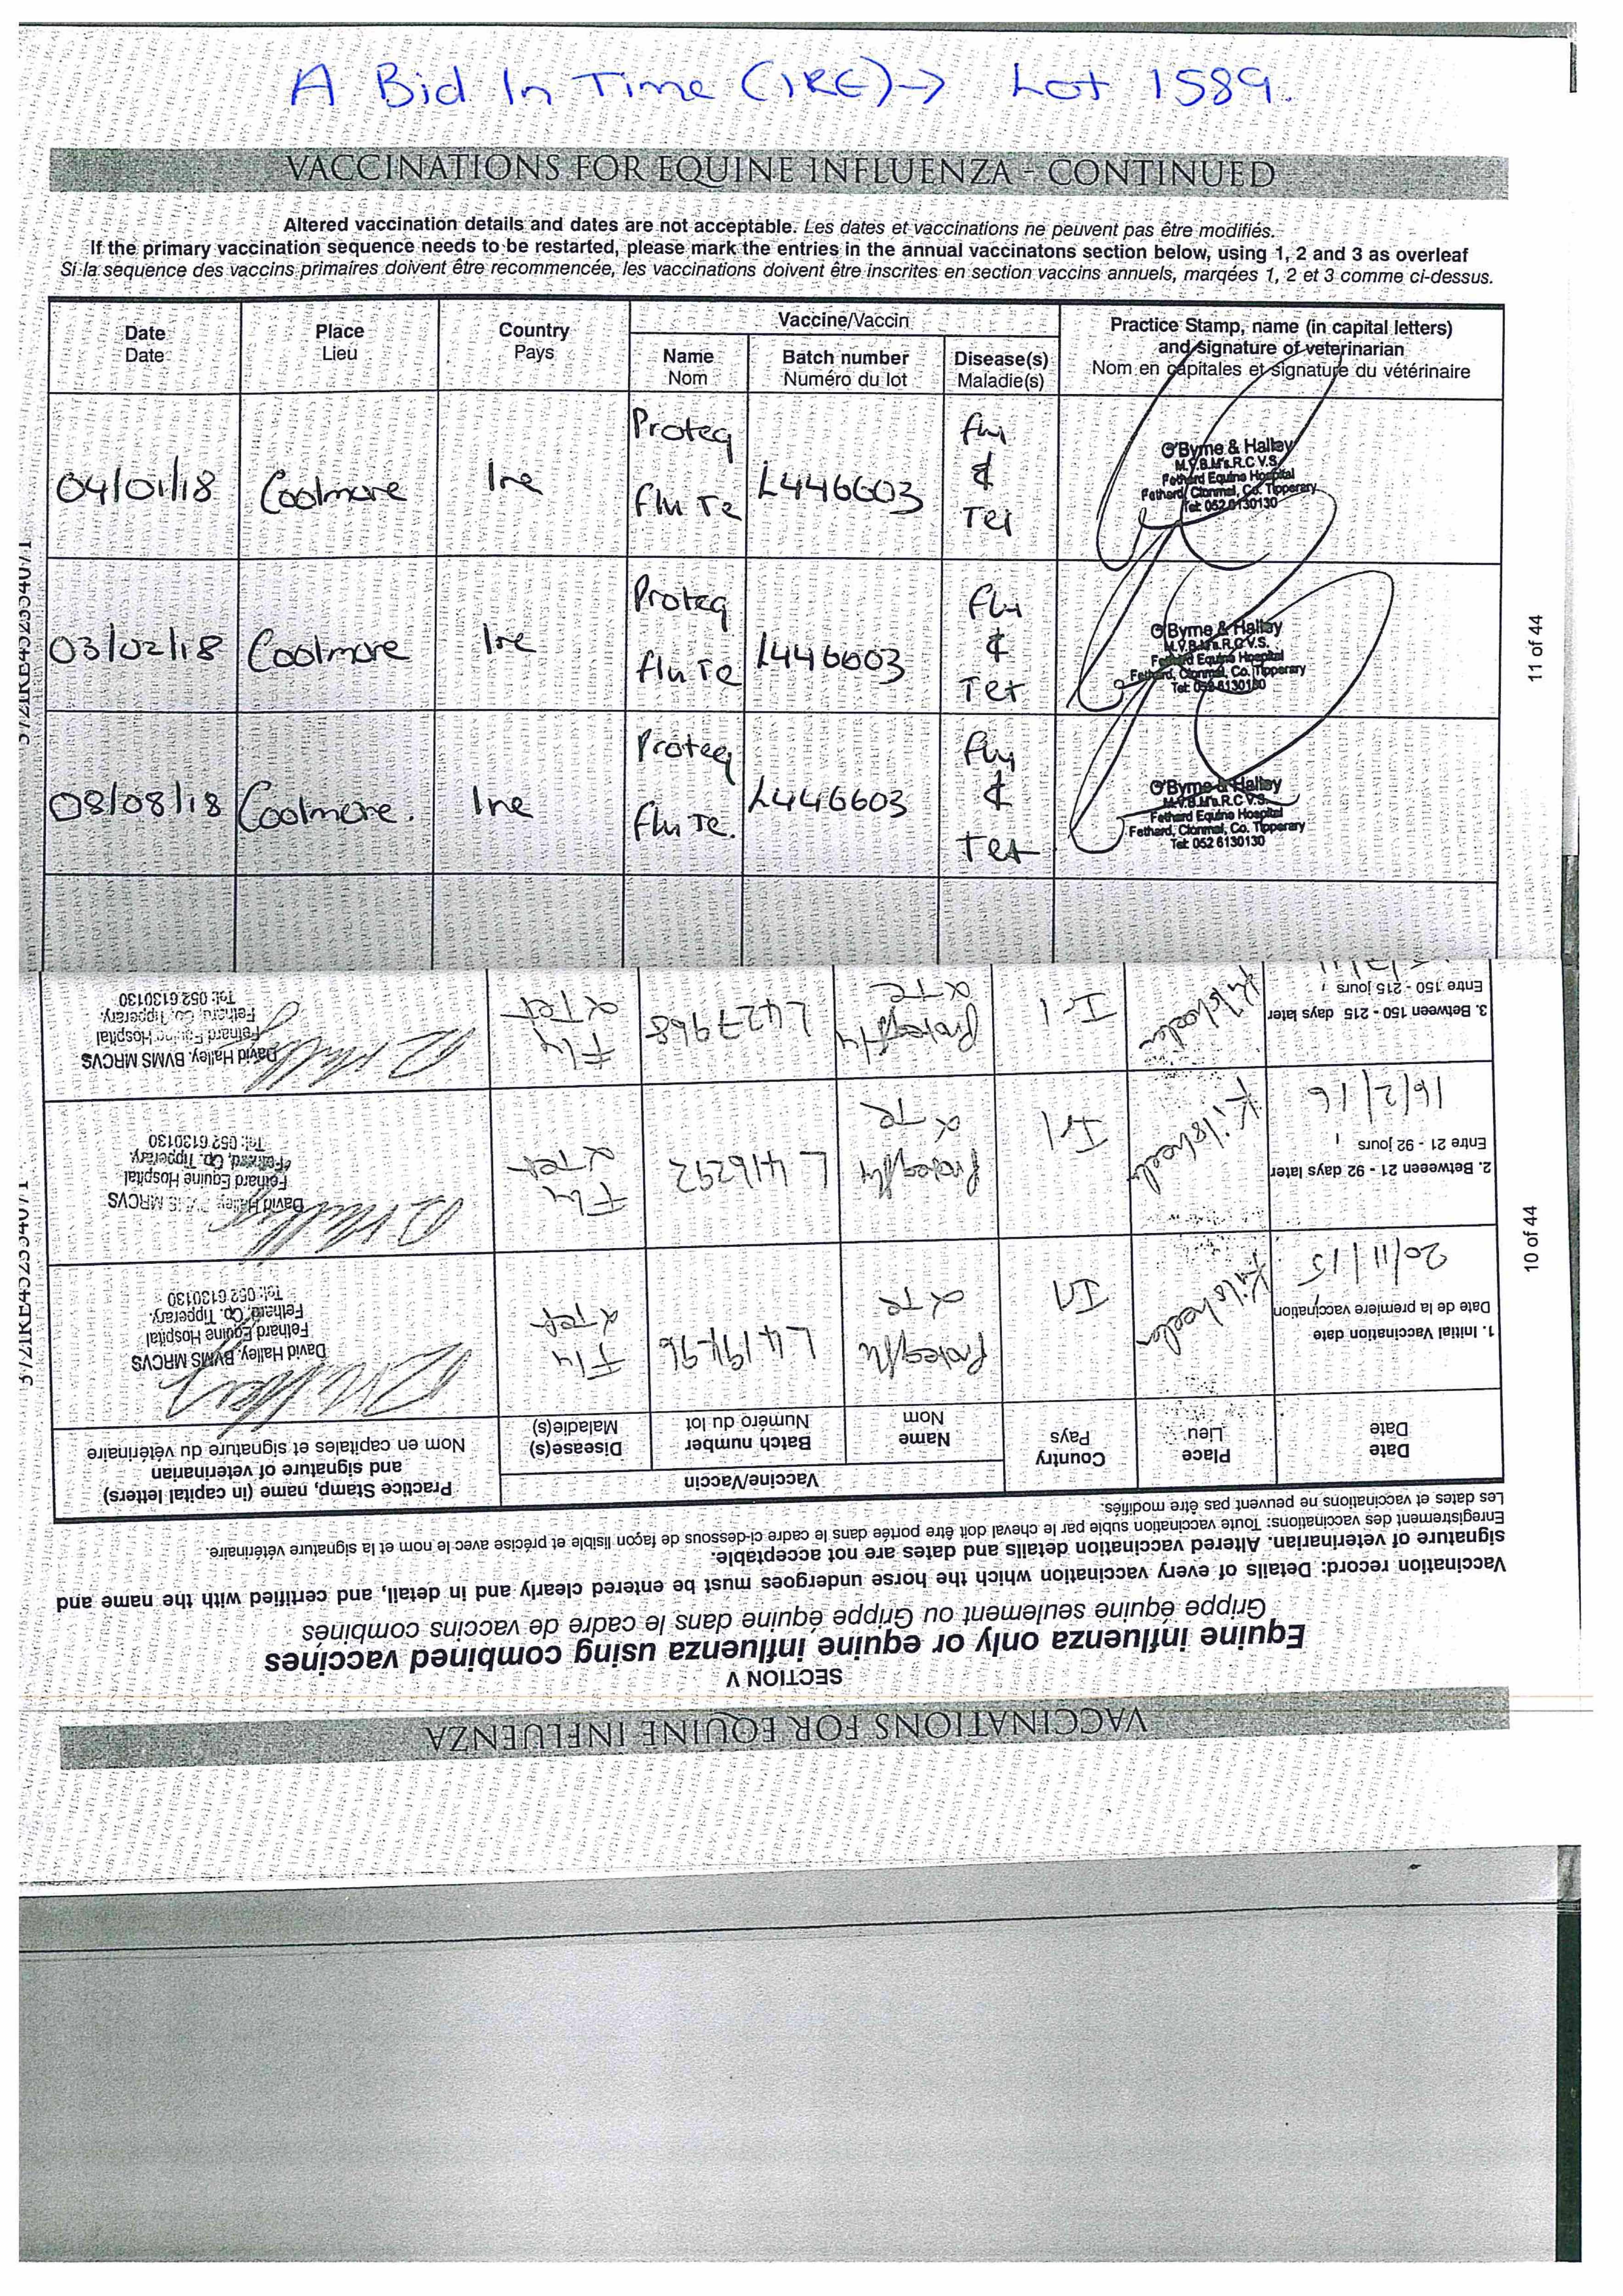 A Bid In Time (IRE) → Lot 1589.
VACCINATIONS FOR EQUINE INFLUENZA - CONTINUED
Altered vaccination details and dates are not acceptable. Les dates et vaccinations ne peuvent pas être modifiés.
If the primary vaccination sequence needs to be restarted, please mark the entries in the annual vaccinatons section below, using 1, 2 and 3 as overleaf
Si la sequence des vaccins primaires doivent être recommencée, les vaccinations doivent être inscrites en section vaccins annuels, marqées 1, 2 et 3 comme ci-dessus.
Date
Date
Place
Lieu
Country
Pays
Vaccine/Vaccin
Name
Nom
Batch number
Numéro du lot
Disease(s)
Maladie(s)
Practice Stamp, name (in capital letters)
and signature of veterinarian
Nom en capitales et signature du vétérinaire
04/01/18 Coolmore Ire
Proteq
Flu Te
L446603
flu
&
Tet
O'Byrne & Halley
M.V.B.M's.R.C.V.S.
Fethard Equine Hospital
Fethard, Clonmel, Co. Tipperary
Tel: 052 6130130
03/02/18 Coolmore Ire
Proteq
flu Te
L446603
flu
&
Tet
O'Byrne & Halley
M.V.B.M's.R.C.V.S.
Fethard Equine Hospital
Fethard, Clonmel, Co. Tipperary
Tel: 052 6130130
08/08/18 Coolmore. Ire
Proteq
flu Te.
L446603
flu
&
Tet
O'Byrne & Halley
M.V.B.M's.R.C.V.S.
Fethard Equine Hospital
Fethard, Clonmel, Co. Tipperary
Tel: 052 6130130
11 of 44
VACCINATIONS FOR EQUINE INFLUENZA
SECTION V
Equine influenza only or equine influenza using combined vaccines
Grippe équine seulement ou Grippe équine dans le cadre de vaccins combinés
Vaccination record: Details of every vaccination which the horse undergoes must be entered clearly and in detail, and certified with the name and
signature of veterinarian. Altered vaccination details and dates are not acceptable.
Enregistrement des vaccinations: Toute vaccination subie par le cheval doit être portée dans le cadre ci-dessous de façon lisible et précise avec le nom et la signature vétérinaire.
Les dates et vaccinations ne peuvent pas être modifiés.
Date
Date
Place
Lieu
Country
Pays
Vaccine/Vaccin
Name
Nom
Batch number
Numéro du lot
Disease(s)
Maladie(s)
Practice Stamp, name (in capital letters)
and signature of veterinarian
Nom en capitales et signature du vétérinaire
1. Initial Vaccination date
Date de la premiere vaccination
20/11/15
Kilsheelan
Irl
Proteqflu
& Te
L419496
Flu
& Tet
David Halley, BVMS MRCVS
Fethard Equine Hospital
Fethard, Co. Tipperary.
Tel: 052 6130130
2. Betweeen 21 - 92 days later
Entre 21 - 92 jours
16/2/16
Kilsheelan
Irl
Proteqflu
& Te
L416292
Flu
& Tet
David Halley, BVMS MRCVS
Fethard Equine Hospital
Fethard, Co. Tipperary.
Tel: 052 6130130
3. Between 150 - 215 days later
Entre 150 - 215 jours
Kilsheelan
Irl
Proteqflu
& Te
L427968
Flu
& Tet
David Halley, BVMS MRCVS
Fethard Equine Hospital
Fethard, Co. Tipperary.
Tel: 052 6130130
10 of 44